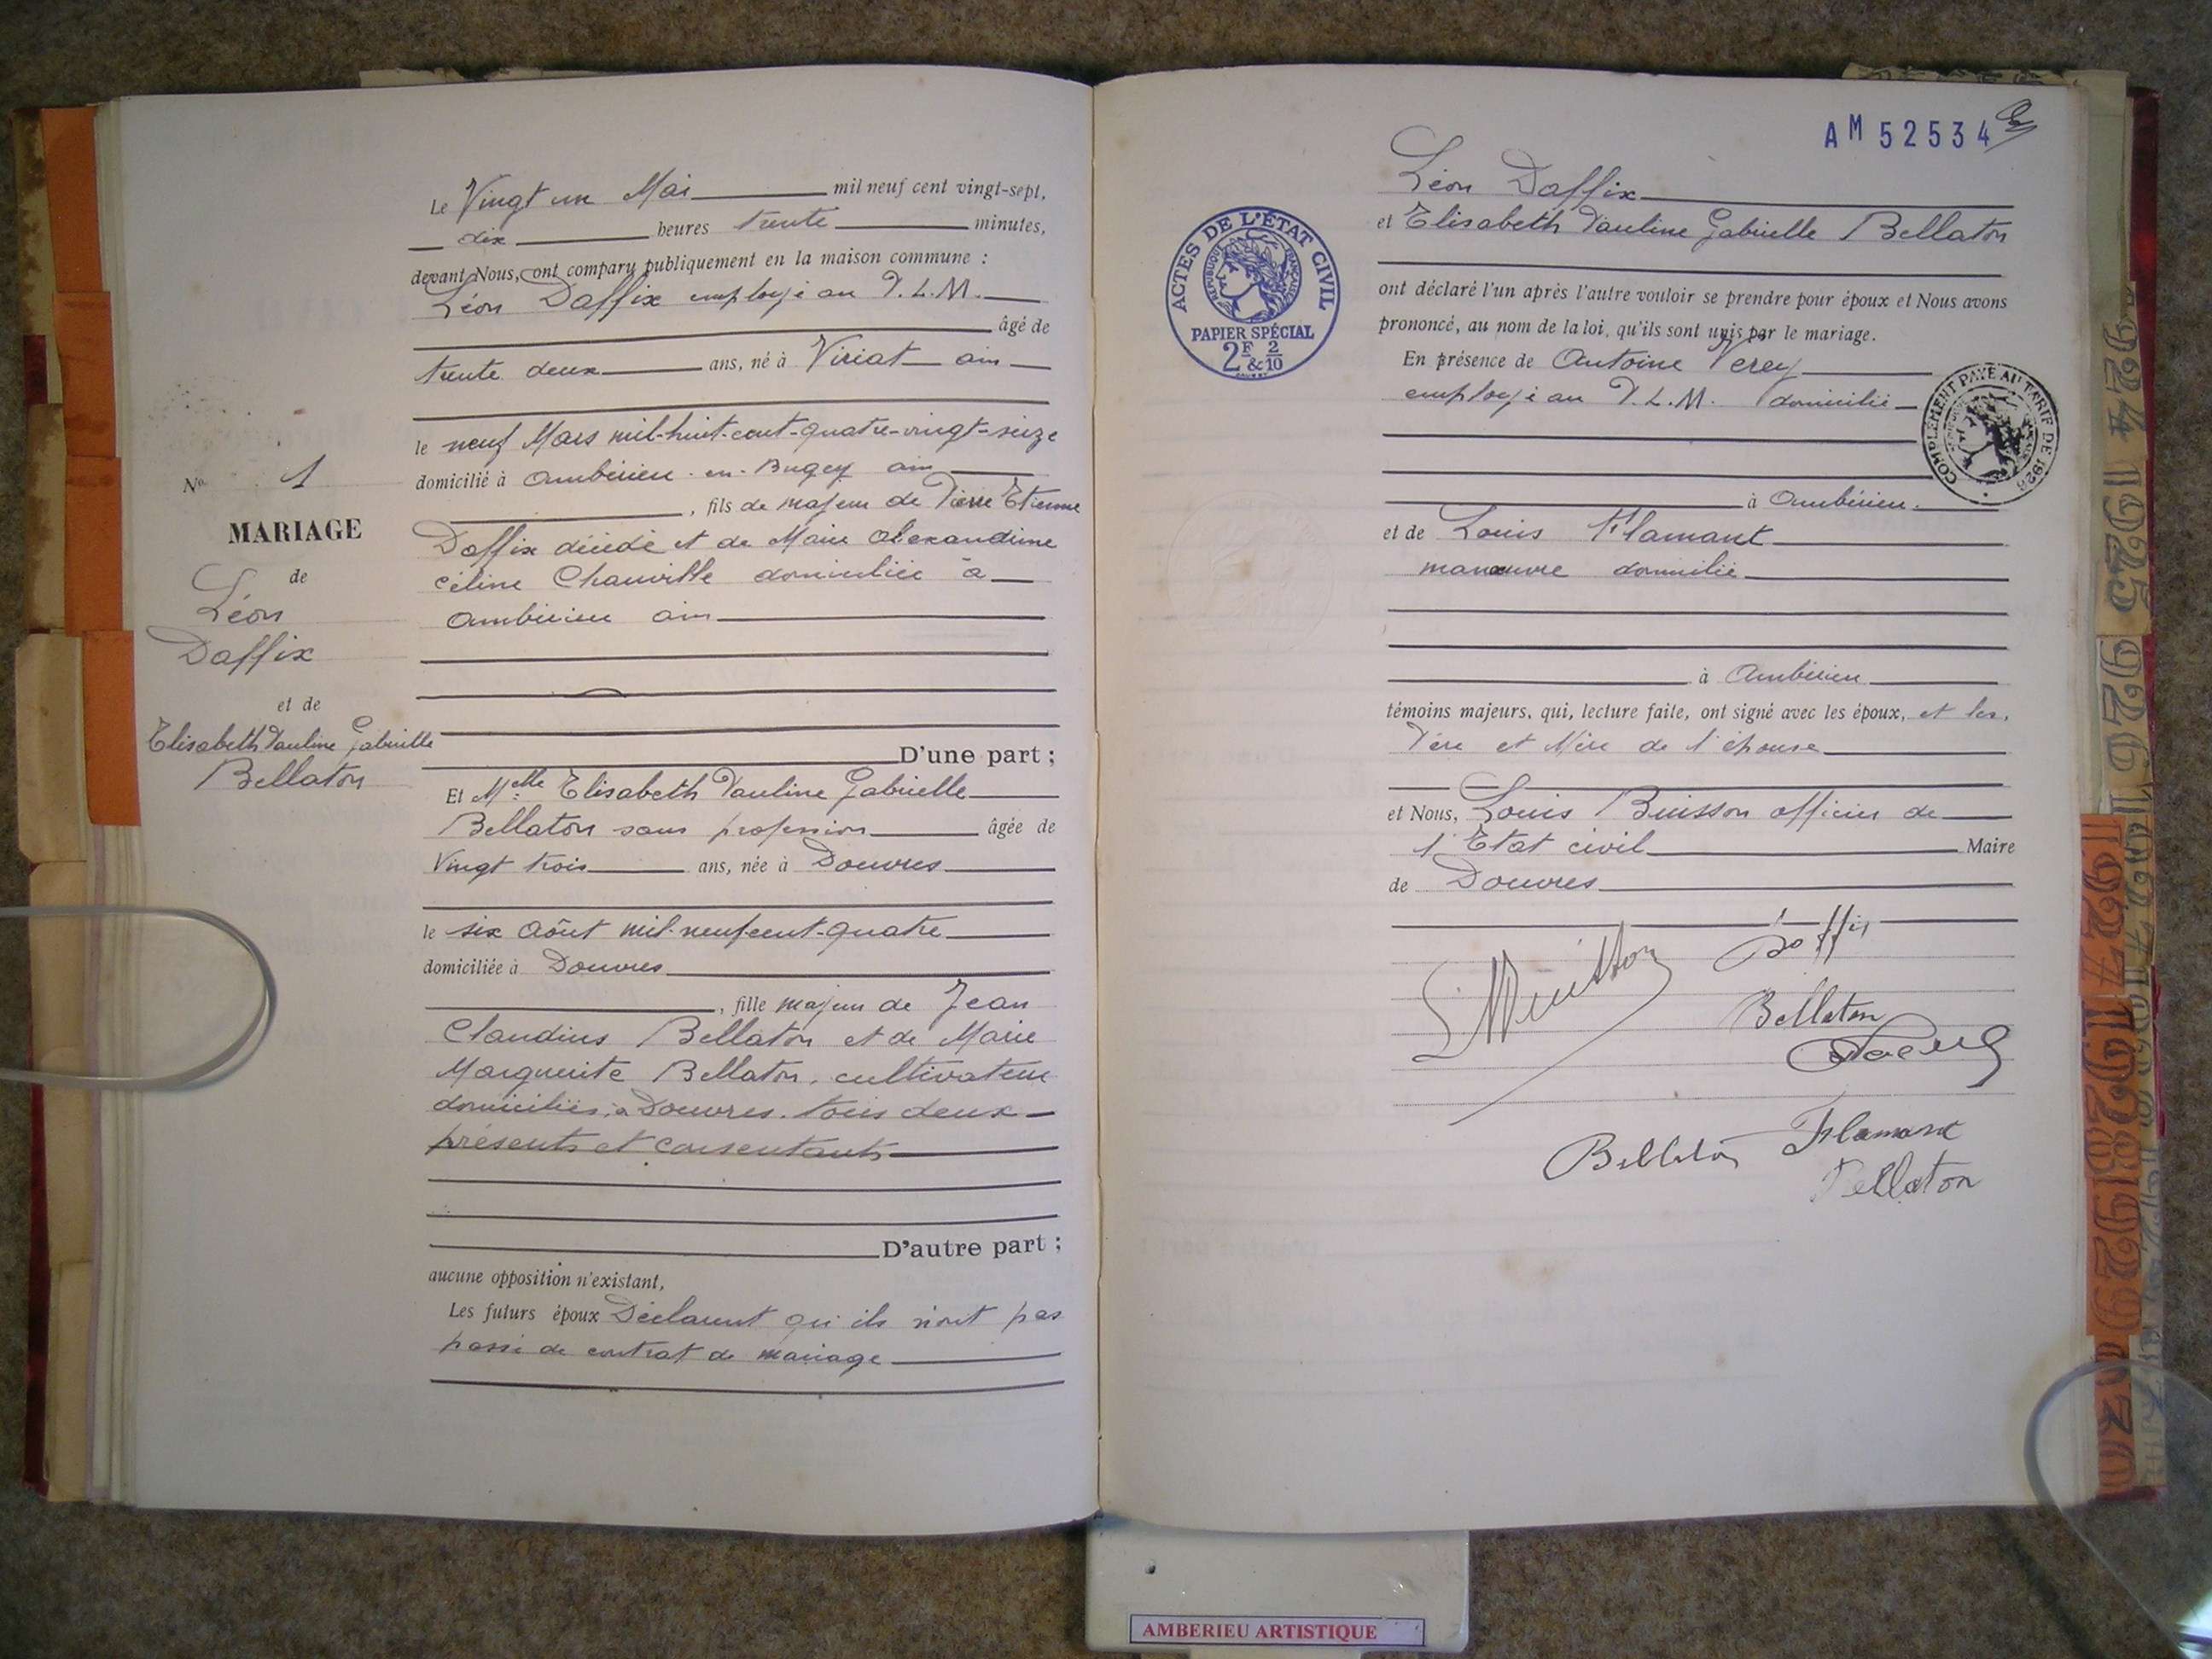 Le Vingt un Mai mil neuf cent vingt-sept,
dix heures trente minutes,
devant Nous, ont comparu publiquement en la maison commune :
Léon Daffix employé au P.L.M.
âgé de
trente deux ans, né à Viriat ain
le neuf Mars mil-huit-cent-quatre-vingt-seize
domicilié à Ambérieu-en-Bugey ain
, fils de majeur de Pierre Etienne
Daffix décédé et de Marie Alexandrine
Céline Chauville domiciliée à
Ambérieu ain
No. 1
MARIAGE
de
Léon
Daffix
et de
Elisabeth Pauline Gabrielle
Bellaton
D'une part ;
Et Melle Elisabeth Pauline Gabrielle
Bellaton sans profession âgée de
Vingt trois ans, née à Douvres
le six Aôut mil-neuf-cent-quatre
domiciliée à Douvres
, fille majeur de Jean
Claudius Bellaton et de Marie
Marguerite Bellaton, cultivateur
domiciliés à Douvres. tous deux
présents et consentants
D'autre part ;
aucune opposition n'existant,
Les futurs époux Déclarent qu'ils n'ont pas
passé de contrat de mariage
AM 52534
Léon Daffix
et Elisabeth Pauline Gabrielle Bellaton
ont déclaré l'un après l'autre vouloir se prendre pour époux et Nous avons
prononcé, au nom de la loi, qu'ils sont unis par le mariage.
En présence de Antoine Verey
employé au P.L.M. domicilié
à Ambérieu.
et de Louis Flamant
manœuvre domicilié
à Ambérieu
témoins majeurs, qui, lecture faite, ont signé avec les époux, et les,
Père et Mère de l'épouse
et Nous, Louis Buisson officier de
l'Etat civil Maire
de Douvres
ACTES DE L'ÉTAT CIVIL
RÉPUBLIQUE FRANÇAISE
PAPIER SPÉCIAL
2F & 2/10
COMPLÉMENT PAYÉ AU TARIF DE 1926
L Buisson
Daffix
Bellaton
Bellaton
Flamant
Bellaton
1924 1925 1926 1927
1927 1928 1929 1930
AMBERIEU ARTISTIQUE